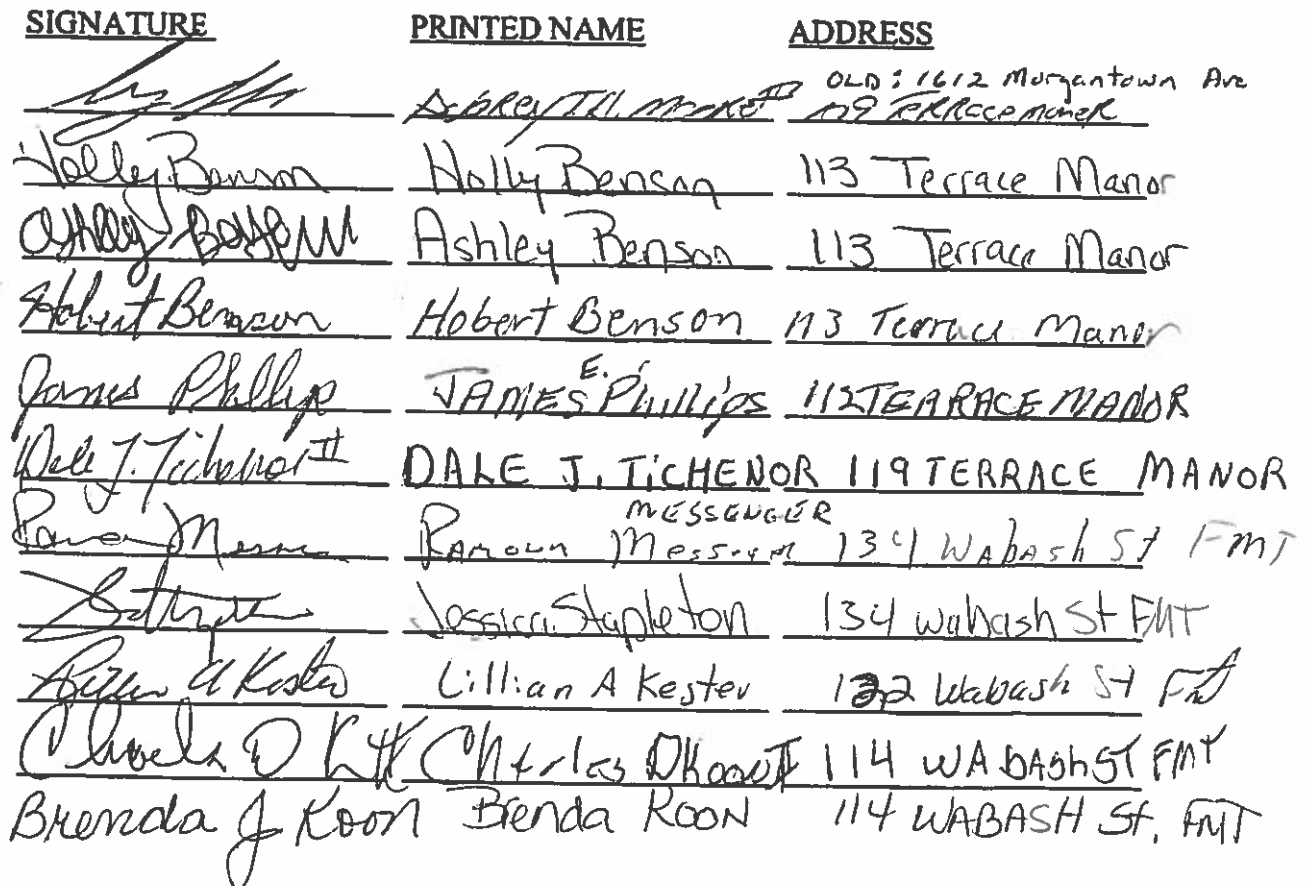 SIGNATURE PRINTED NAME ADDRESS
OLD: 1612 Morgantown Ave
III 119 TERRACE MANER
Holly Benson Holly Benson 113 Terrace Manor
Ashley Benson Ashley Benson 113 Terrace Manor
Hobert Benson Hobert Benson 113 Terrace Manor
E.
James Phillips JAMES Phillips 112 TEARRACE MANOR
Dale J. Tichenor II DALE J. TiCHENOR 119 TERRACE MANOR
MESSENGER
134 Wabash St FMT
Jessica Stapleton 134 wabash St FMT
Lillian A Kester Lillian A Kester 132 Wabash St FMT
Charles D Charles D Koon II 114 WAbAShST FMT
Brenda J Koon Brenda KooN 114 WABASH St. FMT